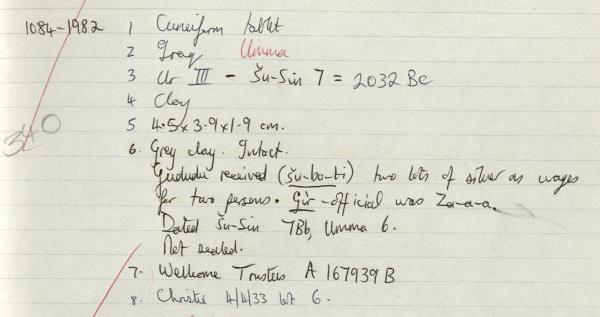 1084-1982 1 Cuneiform tablet
2 Iraq Umma
3 Ur III - Šu-Sin 7 = 2032 BC
4 Clay
340
5 4.5 x 3.9 x 1.9 cm.
6. Grey clay. Intact.
Gududu received (šu-ba-ti) two lots of silver as wages
for two persons. Gìr-official was Za-a-a.
Dated Šu-Sin 7Bb, Umma 6.
Not sealed.
7. Wellcome Trustees A 167939 B
8. Christie 4/4/33 lot 6.